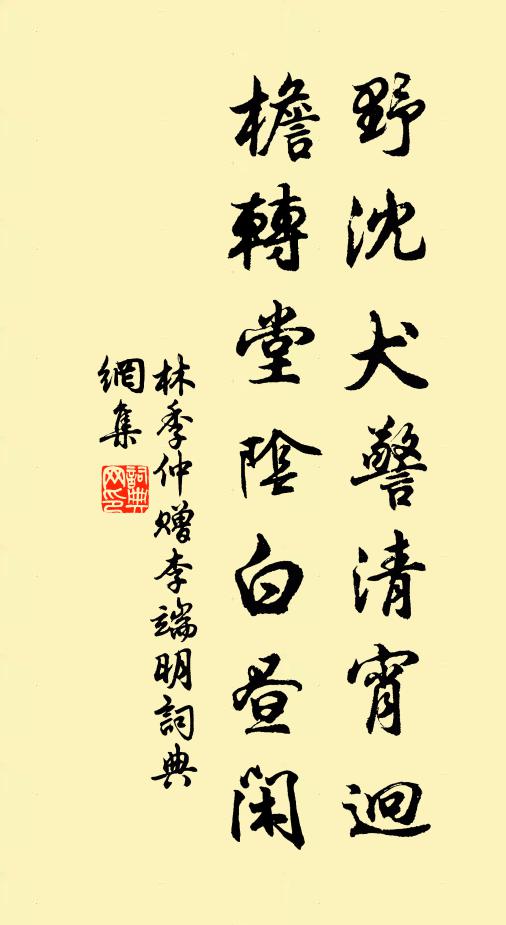 野沈犬警清宵迥
檐轉堂陰白晝閑
林季仲贈李端明詞典
網集
詞典網印